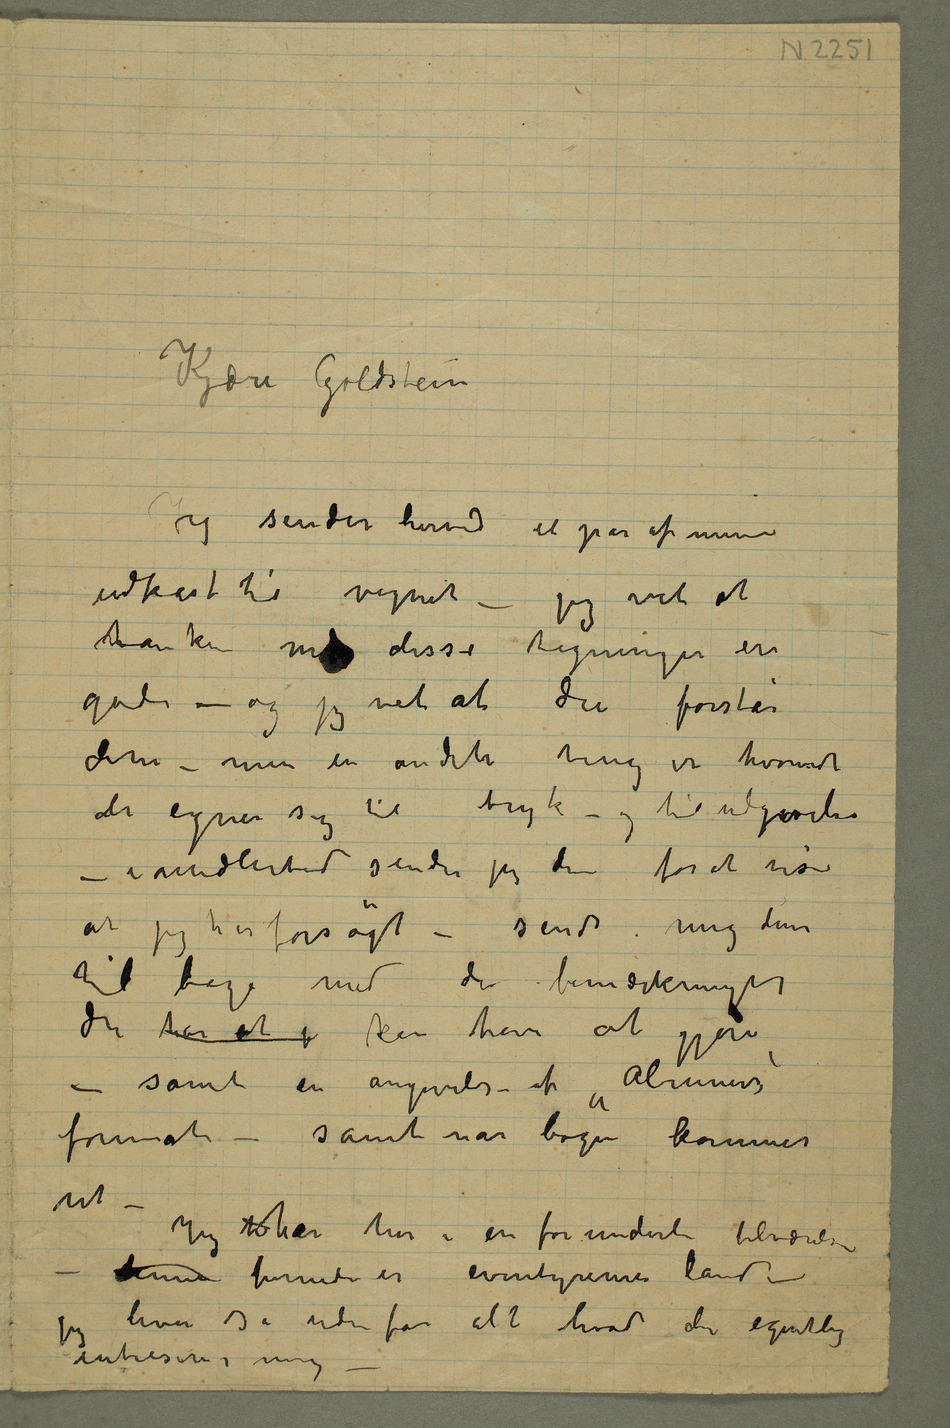 N 2251
Kjære Goldstein
Jeg sender herved et par af mine
udkast til vignet – jeg vet at
tanken med disse tegninger er
gode – og jeg vet at du forstår
dem – men en andet ting er hvorvidt
de egner sig til tryk – og til udgivelse
– imidlertid sender jeg dem for at vise
at jeg har forsøgt – send mig dem
tilbage med de bemærkninger
du har at j kan have at gjøre
– samt en angivelse af „Alruners“
format – samt når bogen kommer
ut –
Jeg har her i en forunderli tilværelse
– denne fornede er eventyrenes land –
jeg lever så uden for alt hvad der egentlig
interesserer mig –